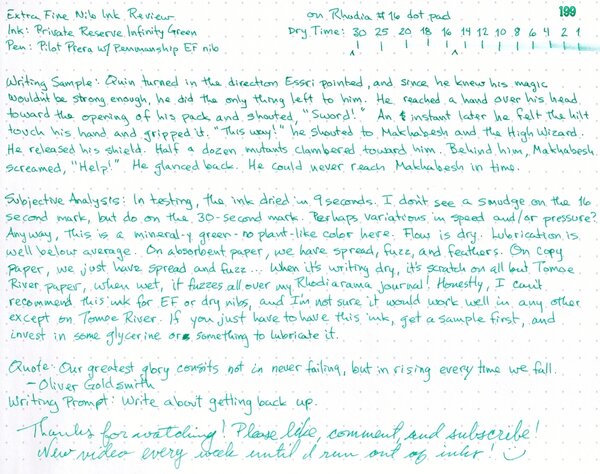 Extra Fine Nib Ink Review on Rhodia #16 dot pad 199
Ink: Private Reserve Infinity Green Dry Time: 30 25 20 18 16 14 12 10 8 6 4 2 1
Pen: Pilot Prera w/Penmanship EF nib
Writing Sample: Quin turned in the direction Essri pointed, and since he knew his magic
wouldn't be strong enough, he did the only thing left to him. He reached a hand over his head
toward the opening of his pack and shouted, "Sword!" An instant later he felt the hilt
touch his hand and gripped it. "This way!" he shouted to Makhabesh and the High Wizard.
He released his shield. Half a dozen mutants clambered toward him. Behind him, Makhabesh
screamed, "Help!" He glanced back. He could never reach Makhabesh in time.
Subjective Analysis: In testing, the ink dried in 9 seconds. I don't see a smudge on the 16
second mark, but do on the 30-second mark. Perhaps variations in speed and/or pressure?
Anyway, this is a mineral-y green - no plant-like color here. Flow is dry. Lubrication is
well below average. On absorbent paper, we have spread, fuzz, and feathers. On copy
paper, we just have spread and fuzz... When it's writing dry, it's scratch on all but Tomoe
River paper, when wet, it fuzzes all over my Rhodiarama journal! Honestly, I can't
recommend this ink for EF or dry nibs, and I'm not sure it would work well in any other
except on Tomoe River. If you just have to have this ink, get a sample first, and
invest in some glycerine or something to lubricate it.
Quote: Our greatest glory consits not in never failing, but in rising every time we fall.
-Oliver Goldsmith
Writing Prompt: Write about getting back up.
Thanks for watching! Please like, comment, and subscribe!
New video every week until I run out of inks!